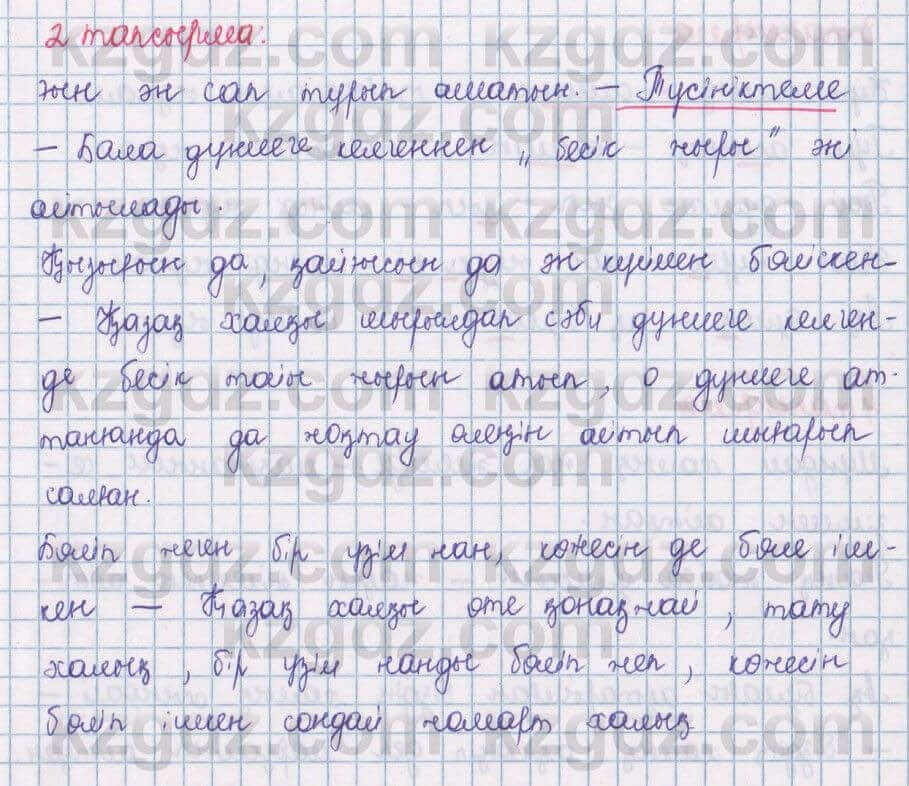 2 тапсырма:
жүн ән сап турып ашатын. — Түсініктеме
— Бала дүниеге келгеннен „бесік жыры" әні
айтылады.
Қызығын да, қайғысын да ән күймен бөліскен —
— Қазақ халқы шырылдап сәби дүниеге келген-
де бесік тойы жырын атып, о дүниеге ат-
танғанда да жоқтау өлеңін айтып шығарып
салған.
Бөліп жеген бір үзім нан, көжесін де бөле іш-
кен — Қазақ халқы өте қонақжай, тату
халық, бір үзім нанды бөліп жеп, көжесін
бөліп ішкен сондай жомарт халық
kzgdz.com